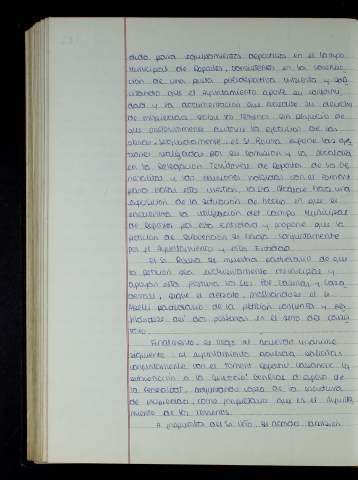 dido para equipamientos deportivos en el Campo
Municipal de Deportes, consistentes en la construc-
ción de una pista polideportiva cubierta y soli
citando que el Ayuntamiento apoye su solicitud,
y la documentación que acredite su derecho
de propiedad sobre los terrenos sin perjuicio de
que posteriormente autorice la ejecución de las
obras. Seguidamente, el Sr. Reina expone las ges
tiones realizadas por su comisión y la Alcaldía
en la Delegación Territorial de Deportes de la Ge
neralitat y las reuniones habidas con el Foment
para tratar esta cuestión. La Sra. Alcaldesa hace una
exposición de la situación de hecho en que se
encuentra la utilización del Campo Municipal
de Deportes por esta Entidad y propone que la
petición de subvención se haga conjuntamente
por el Ayuntamiento y esta Entidad.
El Sr. Reina se muestra partidario de que
la petición sea exclusivamente municipal y
apoyan esta postura los Srs. y
sigue el debate, mostrándose el Sr.
partidario de la petición conjunta y
las dos posturas en el seno del Consis
torio.
Finalmente, se llegó al acuerdo unánime
siguiente: el Ayuntamiento acuerda solicitar
conjuntamente con el Foment Deportiu la
subvención a la Direcció General d'Esports de
la Generalitat, adjuntando copia de la escritura
de propiedad, como propietario que es el Ayunta
miento de los terrenos.
A propuesta del Sr. se acordó también